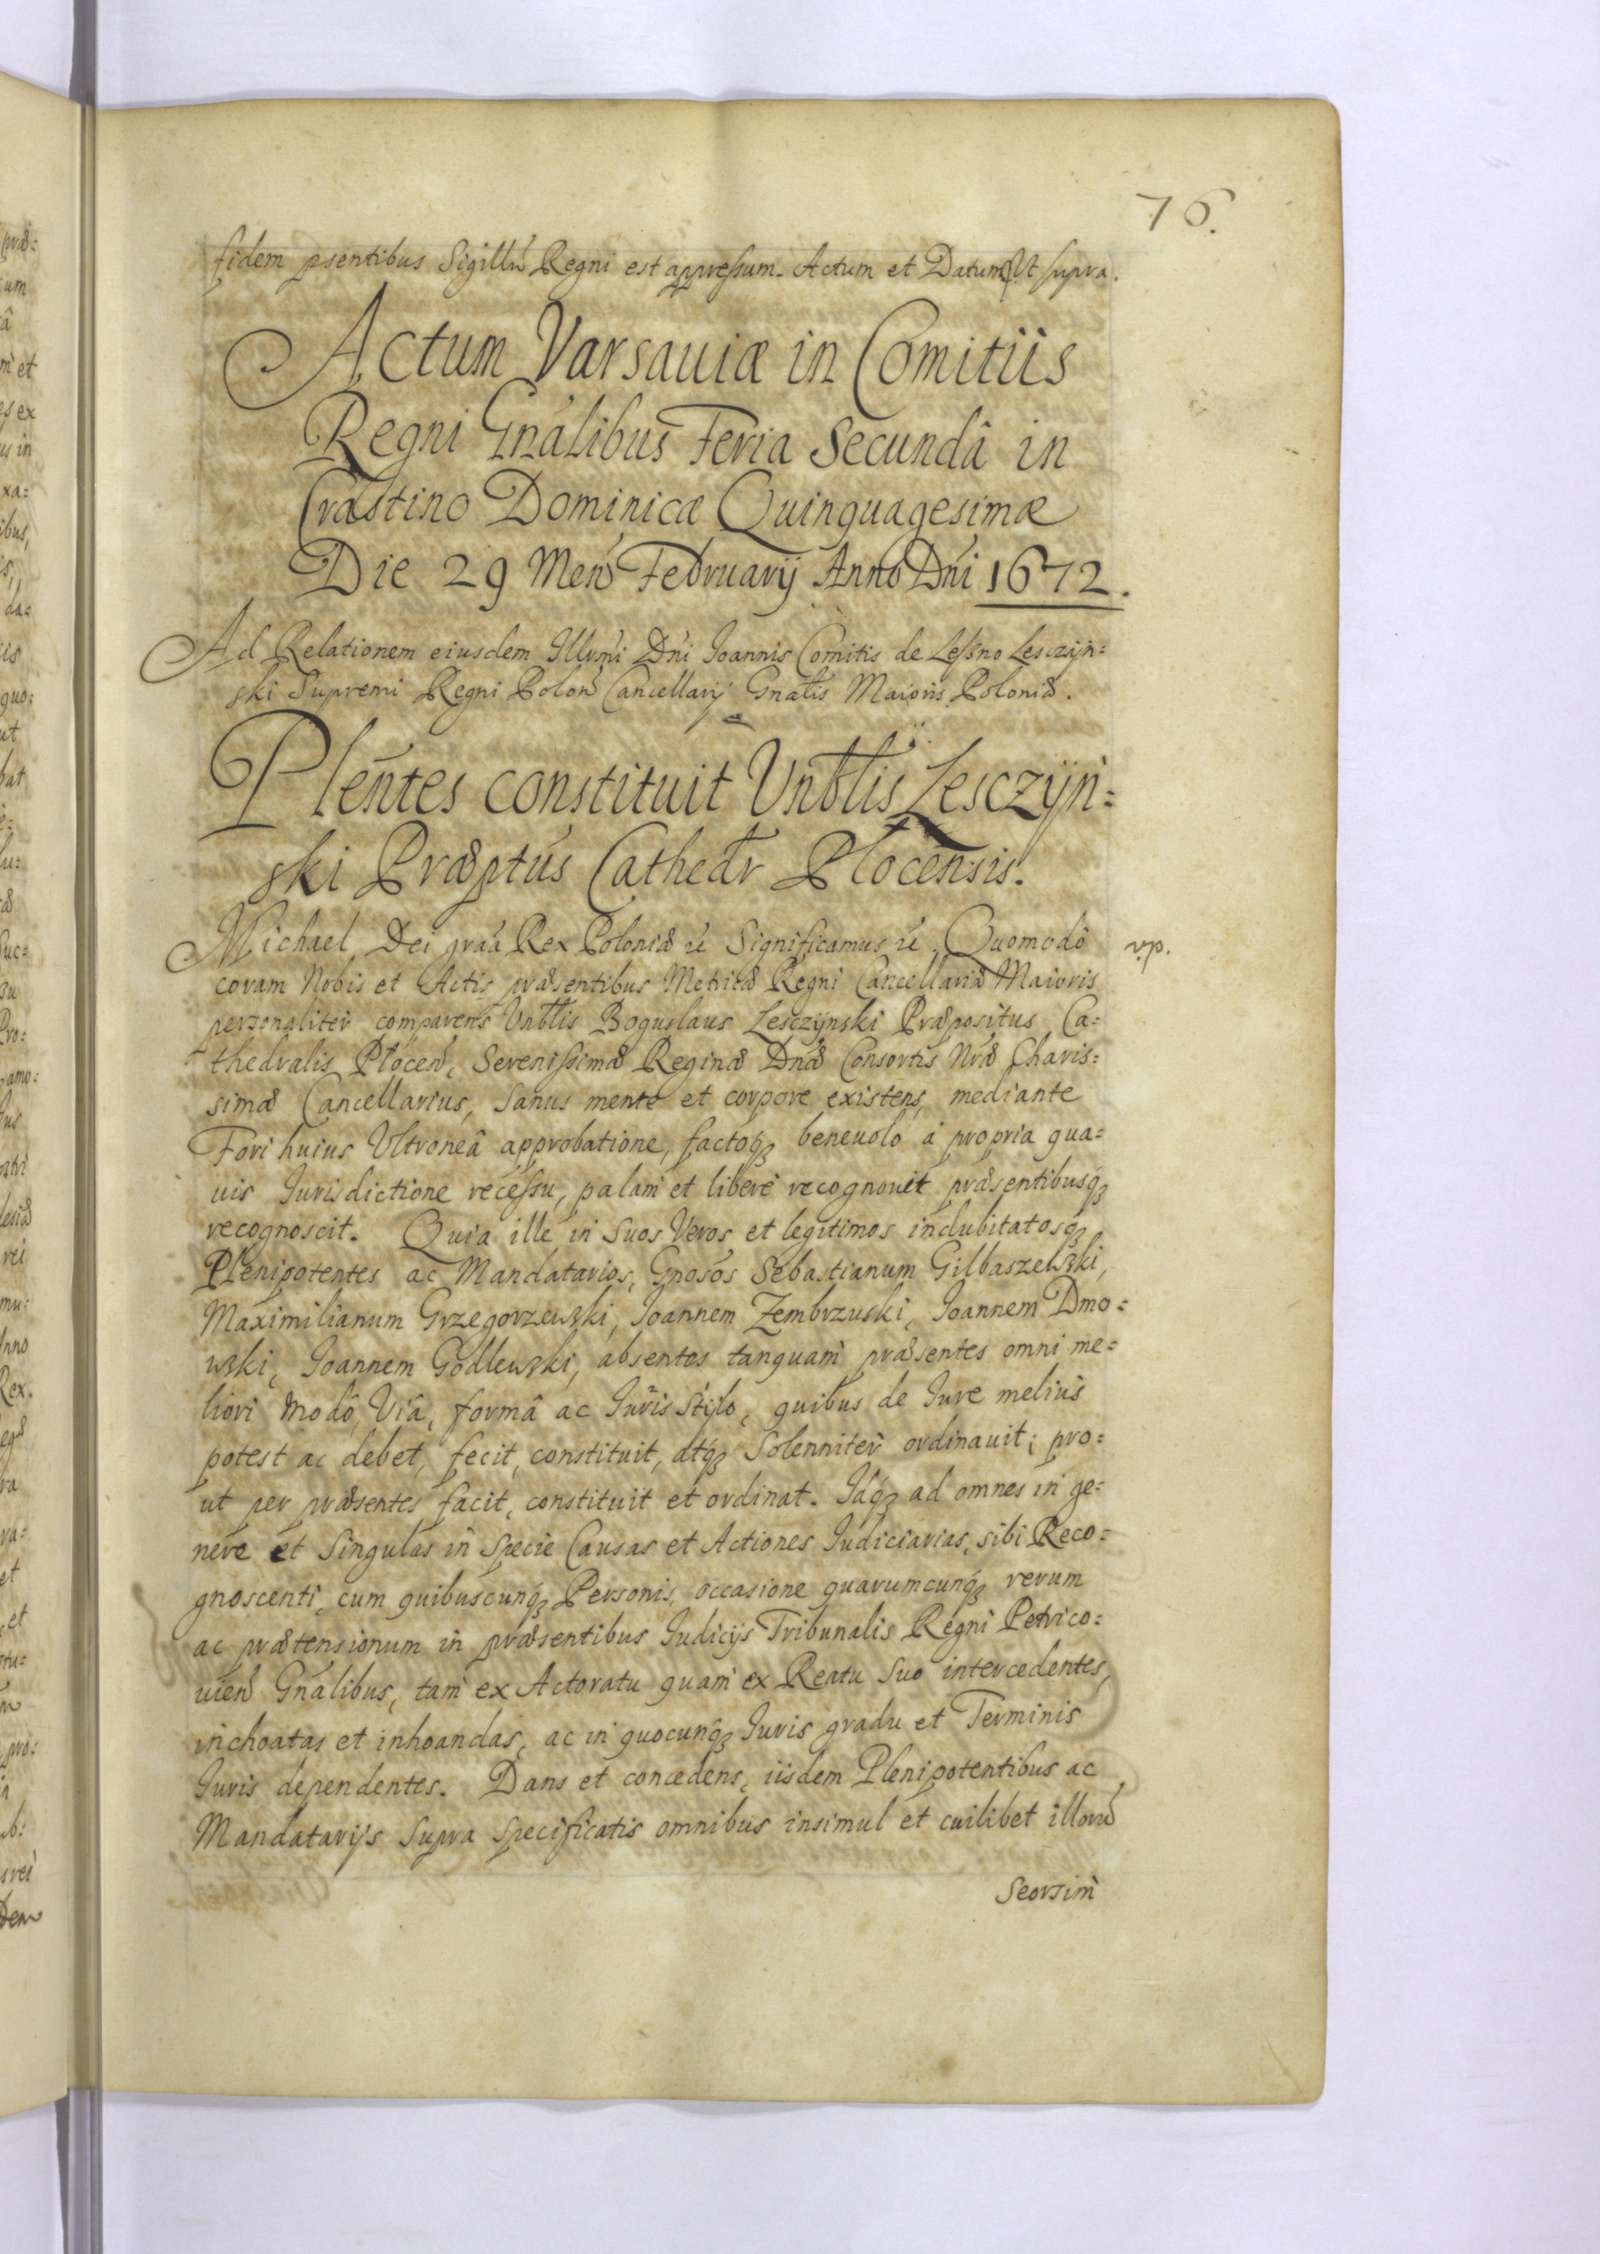 76.
fidem psentibus Sigillũ Regni est appressum. Actum et Datum Ut supra.
Actum Varsauiæ in Comitiis
Regni Gnãlibus Feria Secundâ in
Crastino Dominicæ Quinquagesimæ
Die 29 Men̄ Februarij Anno Dñi 1672.
Ad Relationem eiusdem Illmi Dñi Joannis Comitis de Leszno Lesczyn=
ski Supremi Regni Polon̄ Cancellarij Gnalis Maioris Poloniæ.
Plentes constituit Vnblis Lesczyn=
ski Præptus Cathedr Plocensis.
Michael Dei graã Rex Poloniæ &c Significamus &c. Quomodo
v.p.
coram Nobis et Actis præsentibus Metricæ Regni Cancellariæ Maioris
personaliter comparens Vnblis Boguslaus Lesczynski Præpositus Ca=
thedralis Plocen̄, Serenissimæ Reginæ Dnæ Consortis Nræ Charis=
simæ Cancellarius, Sanus mente et corpore existens, mediante
Fori huius Vltroneâ approbatione, factoq́ꝫ beneuolo á propria qua=
uis Jurisdictione recessu, palam et liberè recognouit præsentibusq́ꝫ
recognoscit. Quia ille in Suos Veros et legitimos indubitatosq́ꝫ
Plenipotentes ac Mandatarios, Gnosos Sebastianum Gilbaszewski,
Maximilianum Grzegorzewski, Joannem Zembrzuski, Joannem Dmo=
wski, Joannem Godlewski, absentes tanquam præsentes omni me=
liori modô, Viâ, formâ ac Juris Stylo, quibus de Jure melius
potest ac debet, fecit, constituit, atq́ꝫ Solenniter ordinauit; pro=
ut per præsentes facit, constituit et ordinat. Idq́ꝫ ad omnes in ge=
nere et Singulas in Specie Causas et Actiones Judiciarias, sibi Reco=
gnoscenti, cum quibuscunq́ꝫ Personis, occasione quarumcunq́ꝫ rerum
ac prætensionum in præsentibus Judicijs Tribunalis Regni Petrico=
uien̄ Gnãlibus, tam ex Actoratu quam ex Reatu Suo intercedentes,
inchoatas et inhoandas, ac in quocunq́ꝫ Juris gradu et Terminis
Juris dependentes. Dans et concedens, iisdem Plenipotentibus ac
Mandatarijs Supra Specificatis omnibus insimul et cuilibet illorũ
Seorsim